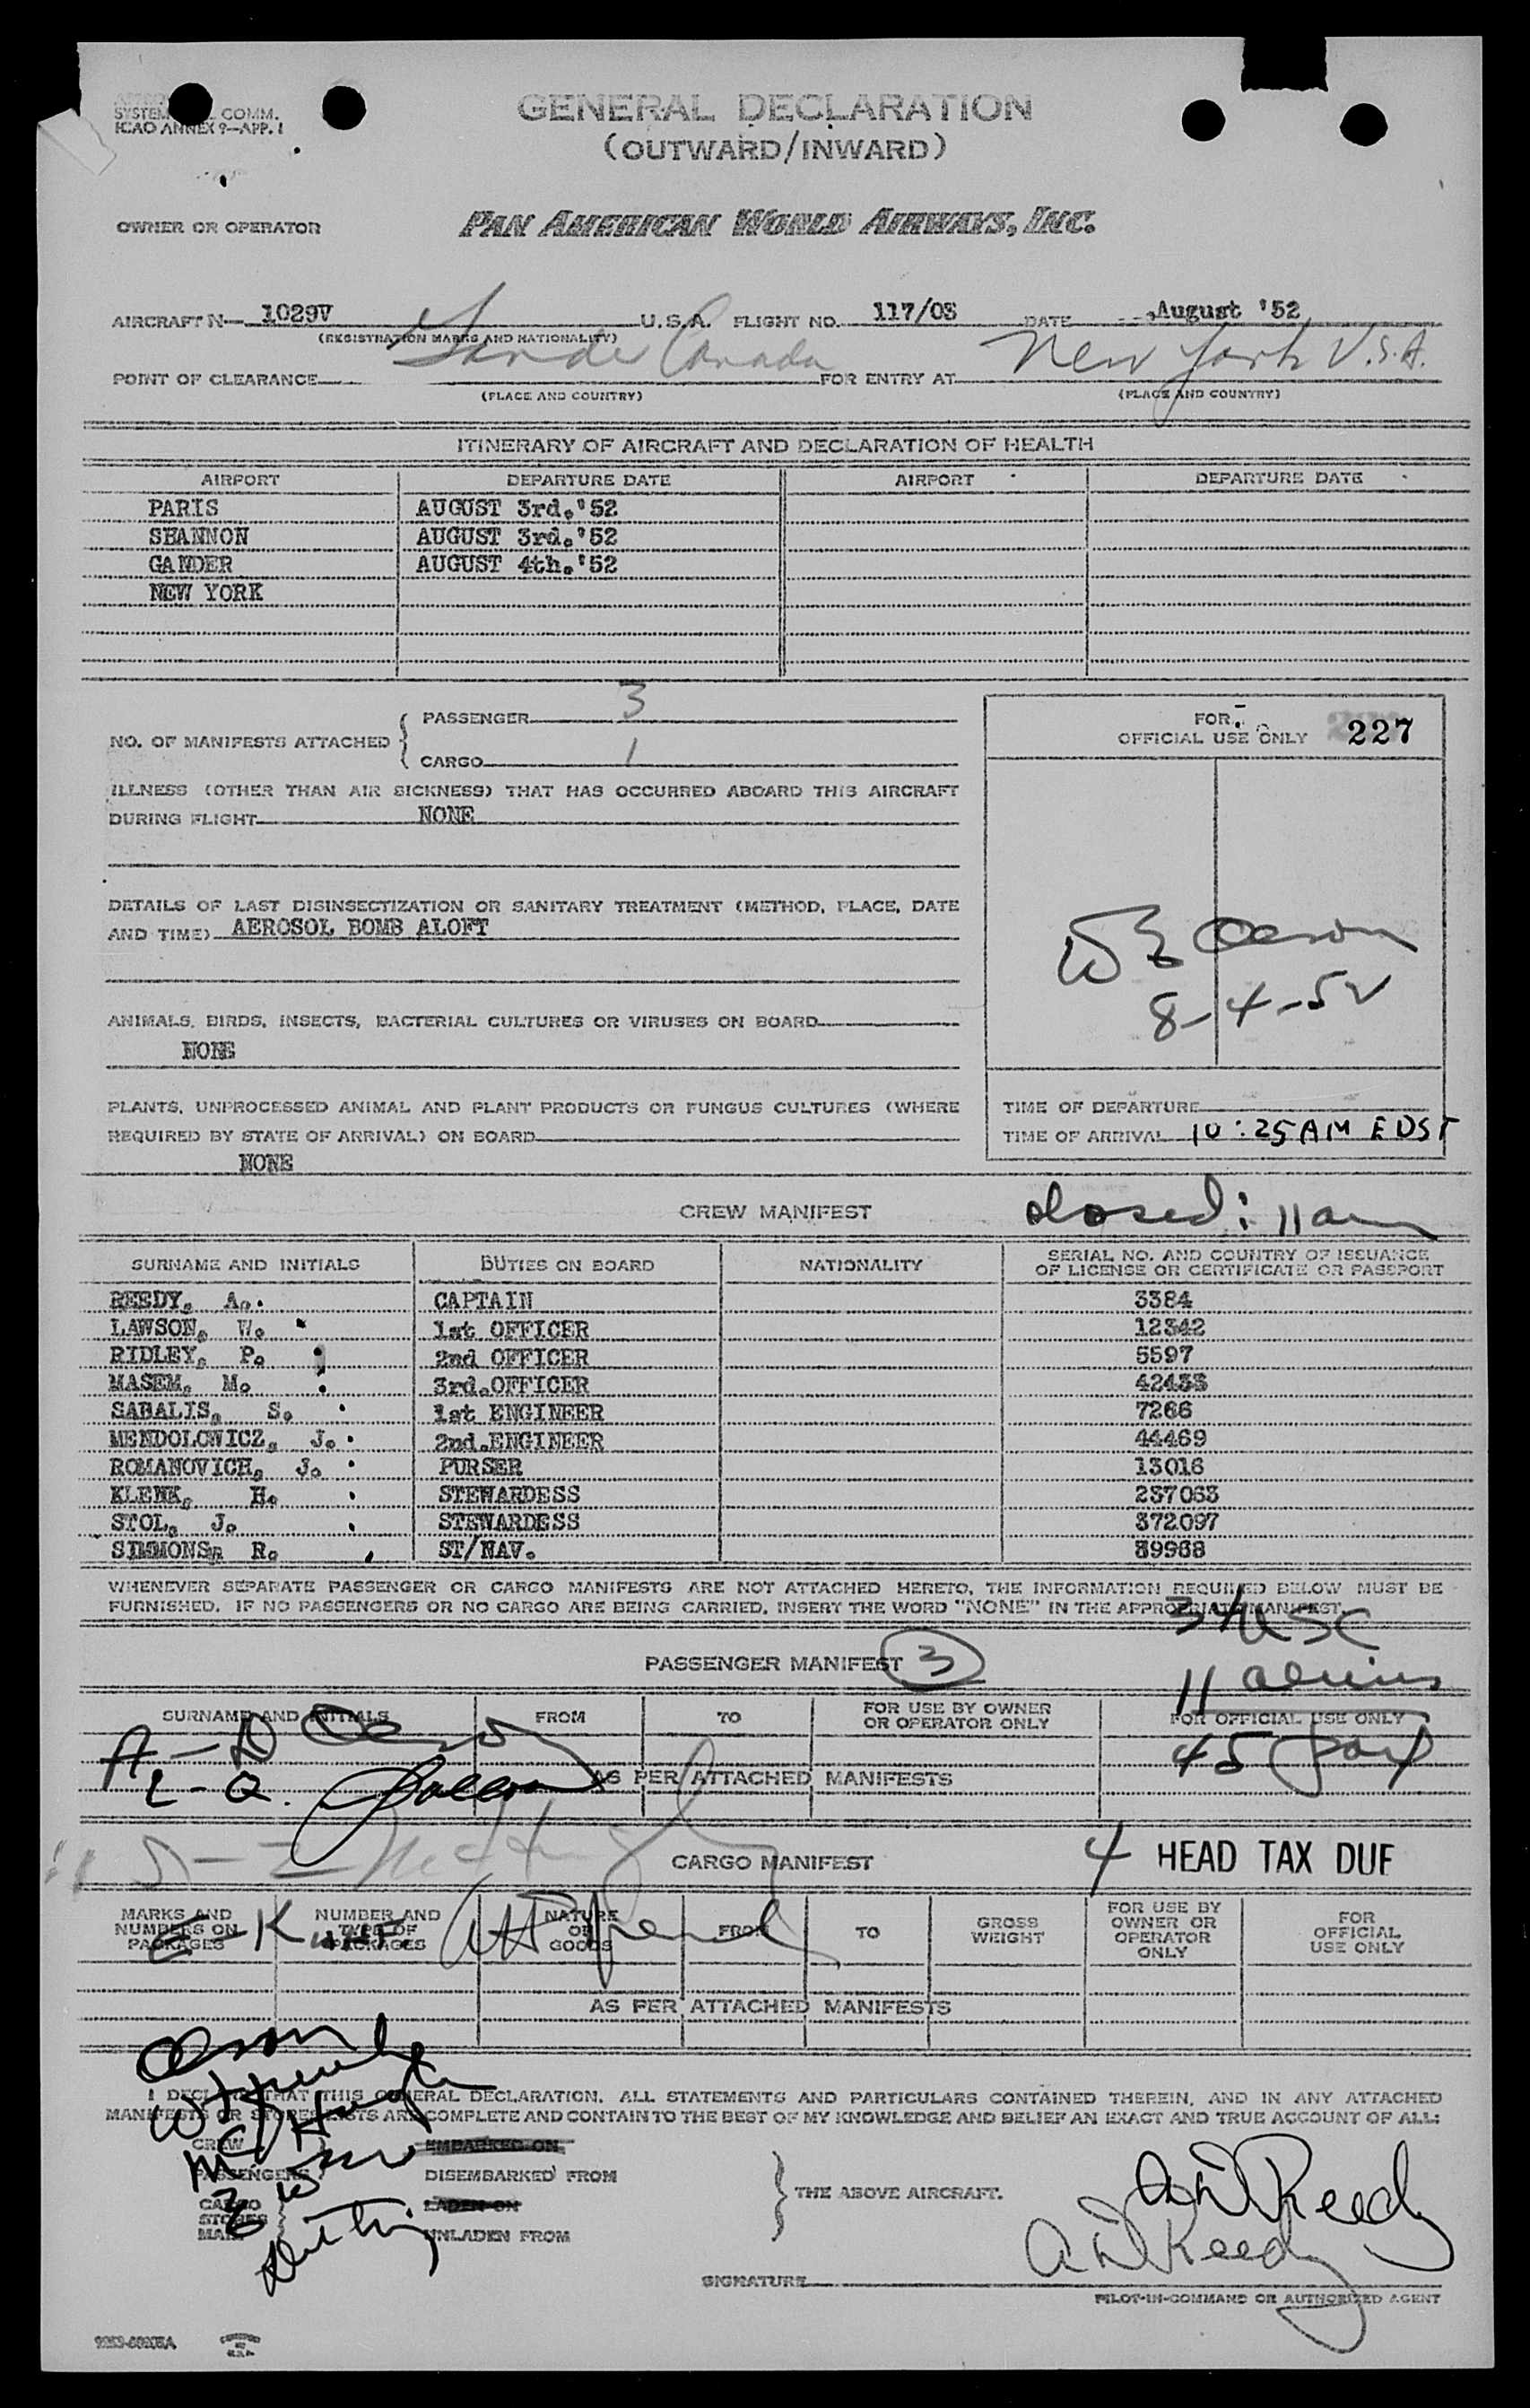 SYSTEM COMM.
ICAO ANNEX 9—APP. 1
GENERAL DECLARATION
(OUTWARD/INWARD)
OWNER OR OPERATOR PAN AMERICAN WORLD AIRWAYS, INC.
AIRCRAFT N— 1029V U.S.A. FLIGHT NO. 117/03 DATE August '52
(REGISTRATION MARKS AND NATIONALITY)
POINT OF CLEARANCE Gander Canada FOR ENTRY AT New York U.S.A.
(PLACE AND COUNTRY) (PLACE AND COUNTRY)
ITINERARY OF AIRCRAFT AND DECLARATION OF HEALTH
AIRPORT DEPARTURE DATE AIRPORT DEPARTURE DATE
PARIS AUGUST 3rd.'52
SHANNON AUGUST 3rd.'52
GANDER AUGUST 4th.'52
NEW YORK
NO. OF MANIFESTS ATTACHED
PASSENGER 3
CARGO 1
FOR
OFFICIAL USE ONLY 227
ILLNESS (OTHER THAN AIR SICKNESS) THAT HAS OCCURRED ABOARD THIS AIRCRAFT
DURING FLIGHT NONE
DETAILS OF LAST DISINSECTIZATION OR SANITARY TREATMENT (METHOD, PLACE, DATE
AND TIME) AEROSOL BOMB ALOFT
8-4-52
ANIMALS, BIRDS, INSECTS, BACTERIAL CULTURES OR VIRUSES ON BOARD
NONE
PLANTS, UNPROCESSED ANIMAL AND PLANT PRODUCTS OR FUNGUS CULTURES (WHERE
REQUIRED BY STATE OF ARRIVAL) ON BOARD
NONE
TIME OF DEPARTURE
TIME OF ARRIVAL 10:25AM EDST
CREW MANIFEST closed: 11 am
SURNAME AND INITIALS DUTIES ON BOARD NATIONALITY SERIAL NO. AND COUNTRY OF ISSUANCE
OF LICENSE OR CERTIFICATE OR PASSPORT
REEDY, A. CAPTAIN 3384
LAWSON, W. 1st OFFICER 12342
RIDLEY, P. 2nd OFFICER 5597
MASEM, M. 3rd.OFFICER 42433
SABALIS, S. 1st ENGINEER 7266
MENDOLOWICZ, J. 2nd.ENGINEER 44469
ROMANOVICH, J. PURSER 13016
KLENK, H. STEWARDESS 237063
STOL, J. STEWARDESS 372097
SIMMONS, R. ST/NAV. 39968
WHENEVER SEPARATE PASSENGER OR CARGO MANIFESTS ARE NOT ATTACHED HERETO, THE INFORMATION REQUIRED BELOW MUST BE
FURNISHED. IF NO PASSENGERS OR NO CARGO ARE BEING CARRIED, INSERT THE WORD "NONE" IN THE APPROPRIATE MANIFEST.
34 USC
PASSENGER MANIFEST 3
11 aliens
SURNAME AND INITIALS FROM TO FOR USE BY OWNER
OR OPERATOR ONLY FOR OFFICIAL USE ONLY
45
AS PER ATTACHED MANIFESTS
CARGO MANIFEST
4 HEAD TAX DUE
MARKS AND
NUMBERS ON
PACKAGES
NUMBER AND
TYPE OF
PACKAGES
NATURE
OF
GOODS
FROM
TO
GROSS
WEIGHT
FOR USE BY
OWNER OR
OPERATOR
ONLY
FOR
OFFICIAL
USE ONLY
AS PER ATTACHED MANIFESTS
I DECLARE THAT THIS GENERAL DECLARATION, ALL STATEMENTS AND PARTICULARS CONTAINED THEREIN, AND IN ANY ATTACHED
MANIFESTS OR STORES LISTS ARE COMPLETE AND CONTAIN TO THE BEST OF MY KNOWLEDGE AND BELIEF AN EXACT AND TRUE ACCOUNT OF ALL:
CREW
PASSENGERS
CARGO
STORES
MAIL
EMBARKED ON
DISEMBARKED FROM
LADEN ON
UNLADEN FROM
THE ABOVE AIRCRAFT.
A D Reedy
A D Reedy
SIGNATURE
PILOT-IN-COMMAND OR AUTHORIZED AGENT